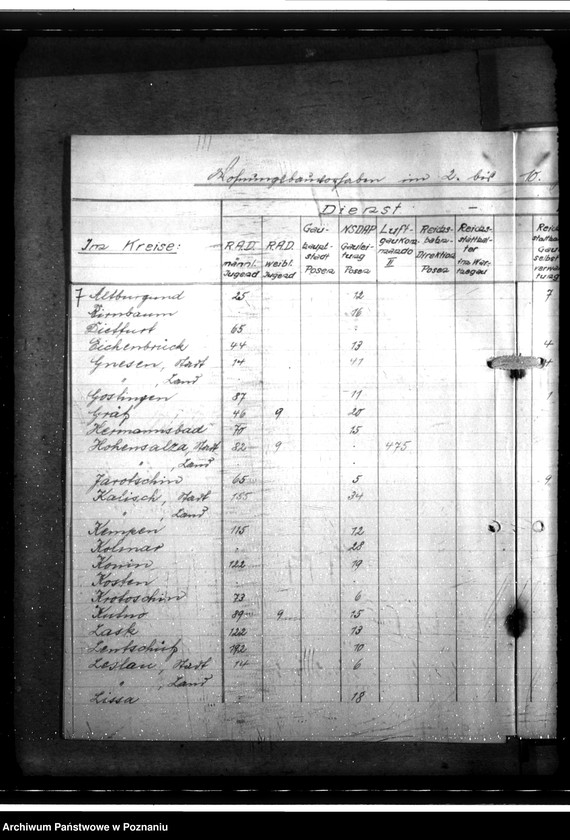 Wohnungsbauvorhaben im 2. bis 10.
Dienst -
Im Kreise: R.A.D. männl. Jugend R.A.D. weibl. Jugend Gau-haupt-stadt Posen NSDAP Gaulei-tung Posen Luft-gaukom-mando II Reichs-bahn-Direktion Posen Reichs-statthal-ter im War-thegau
7 Altburgund 25 12 7
Birnbaum 16
Dietfurt 65
Eichenbrück 44 13 4
Gnesen, Stadt 14 41
" , Land
Gostingen 87 11 1
Grätz 46 9 20
Hermannsbad 70 15
Hohensalza, Stadt 82 9 475
" , Land
Jarotschin 65 5 9
Kalisch, Stadt 155 34
" , Land
Kempen 115 12
Kolmar 28
Konin 122 19
Kosten
Krotoschin 73 6
Kutno 89 9 15
Lask 122 13
Lentschütz 10
Leslau, Stadt 14 6
" , Land
Lissa 18
Archiwum Państwowe w Poznaniu